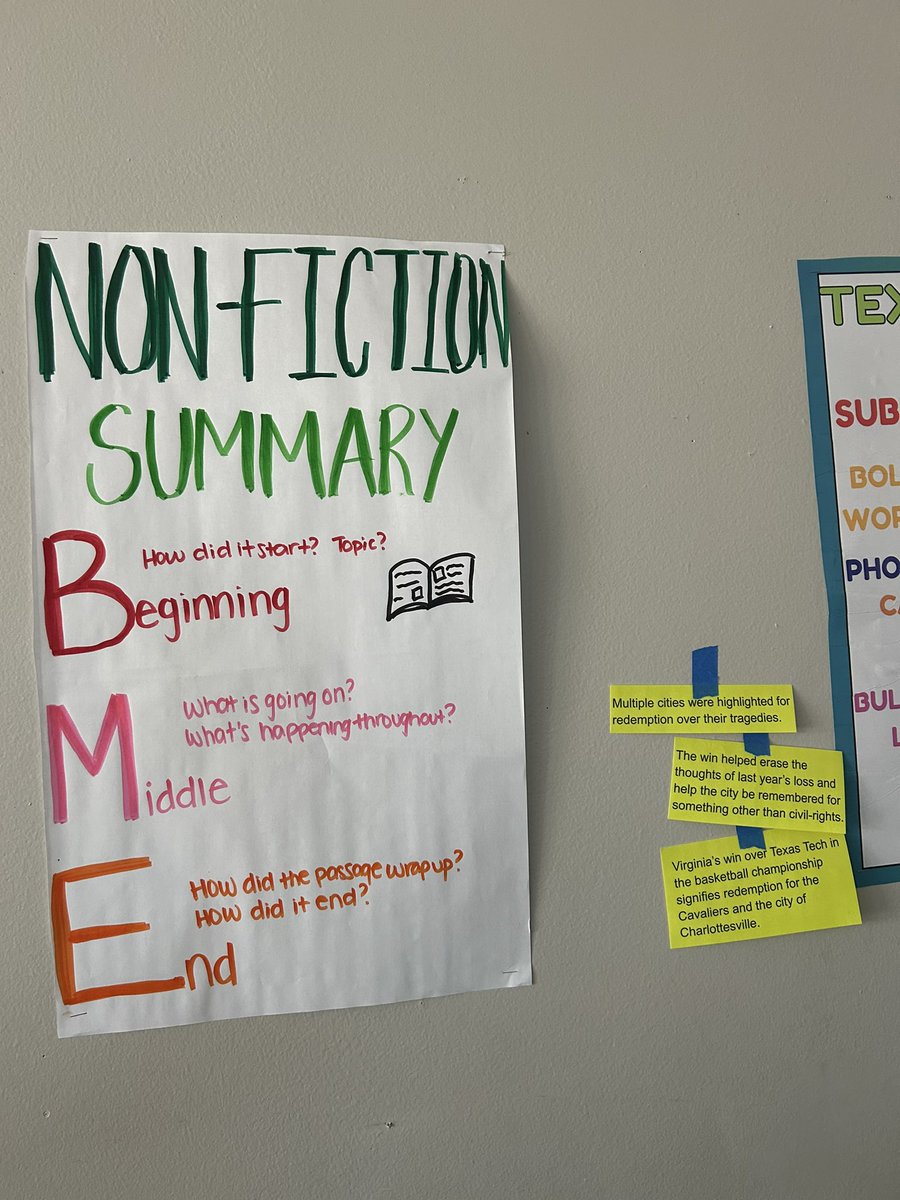 NONFICTION
SUMMARY
How did it start? Topic?
Beginning
What is going on?
What's happening throughout?
Middle
How did the passage wrap up?
How did it end?
End
Multiple cities were highlighted for
redemption over their tragedies.
The win helped erase the
thoughts of last year's loss and
help the city be remembered for
something other than civil-rights.
Virginia's win over Texas Tech in
the basketball championship
signifies redemption for the
Cavaliers and the city of
Charlottesville.